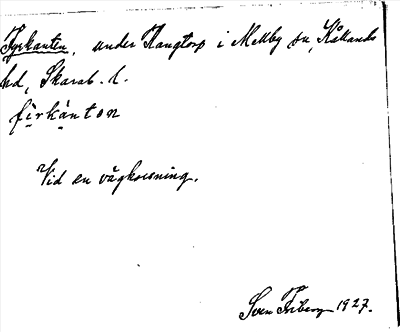 Fyrkanten, under Haugtorp i Mellby sn, Kållands
hd, Skarab. l.
firkànton
Vid en vägkorsning.
Sven Friberg 1927.